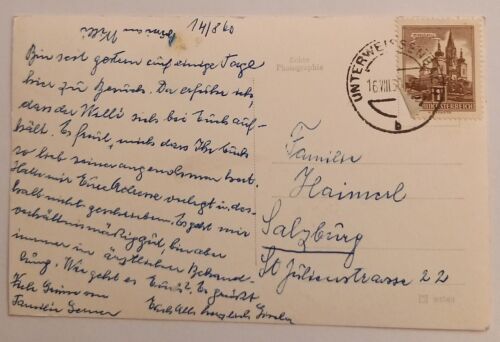 14/8 60
Bin seit gestern auf einige Tage
hier zu Besuch. Da erfuhr ich,
dass der Willi sich bei Euch auf-
hält. Es freut mich dass Ihr Euch
so lieb seiner angenommen habt.
Hatte mir Eure Adresse verlegt u. des-
halb nicht geschrieben. Es geht mir
verhältnismäßig gut, bin aber
immer in ärztlicher Behand-
lung. Wie geht es Euch? Es grüßt
Euch alle herzlich
Viele Grüsse von
Familie
Echte
Photographie
UNTERWEISSEN
16 VIII
b
ÖSTERREICH
Familie
Haimerl
Salzburg
St Julienstrasse 22